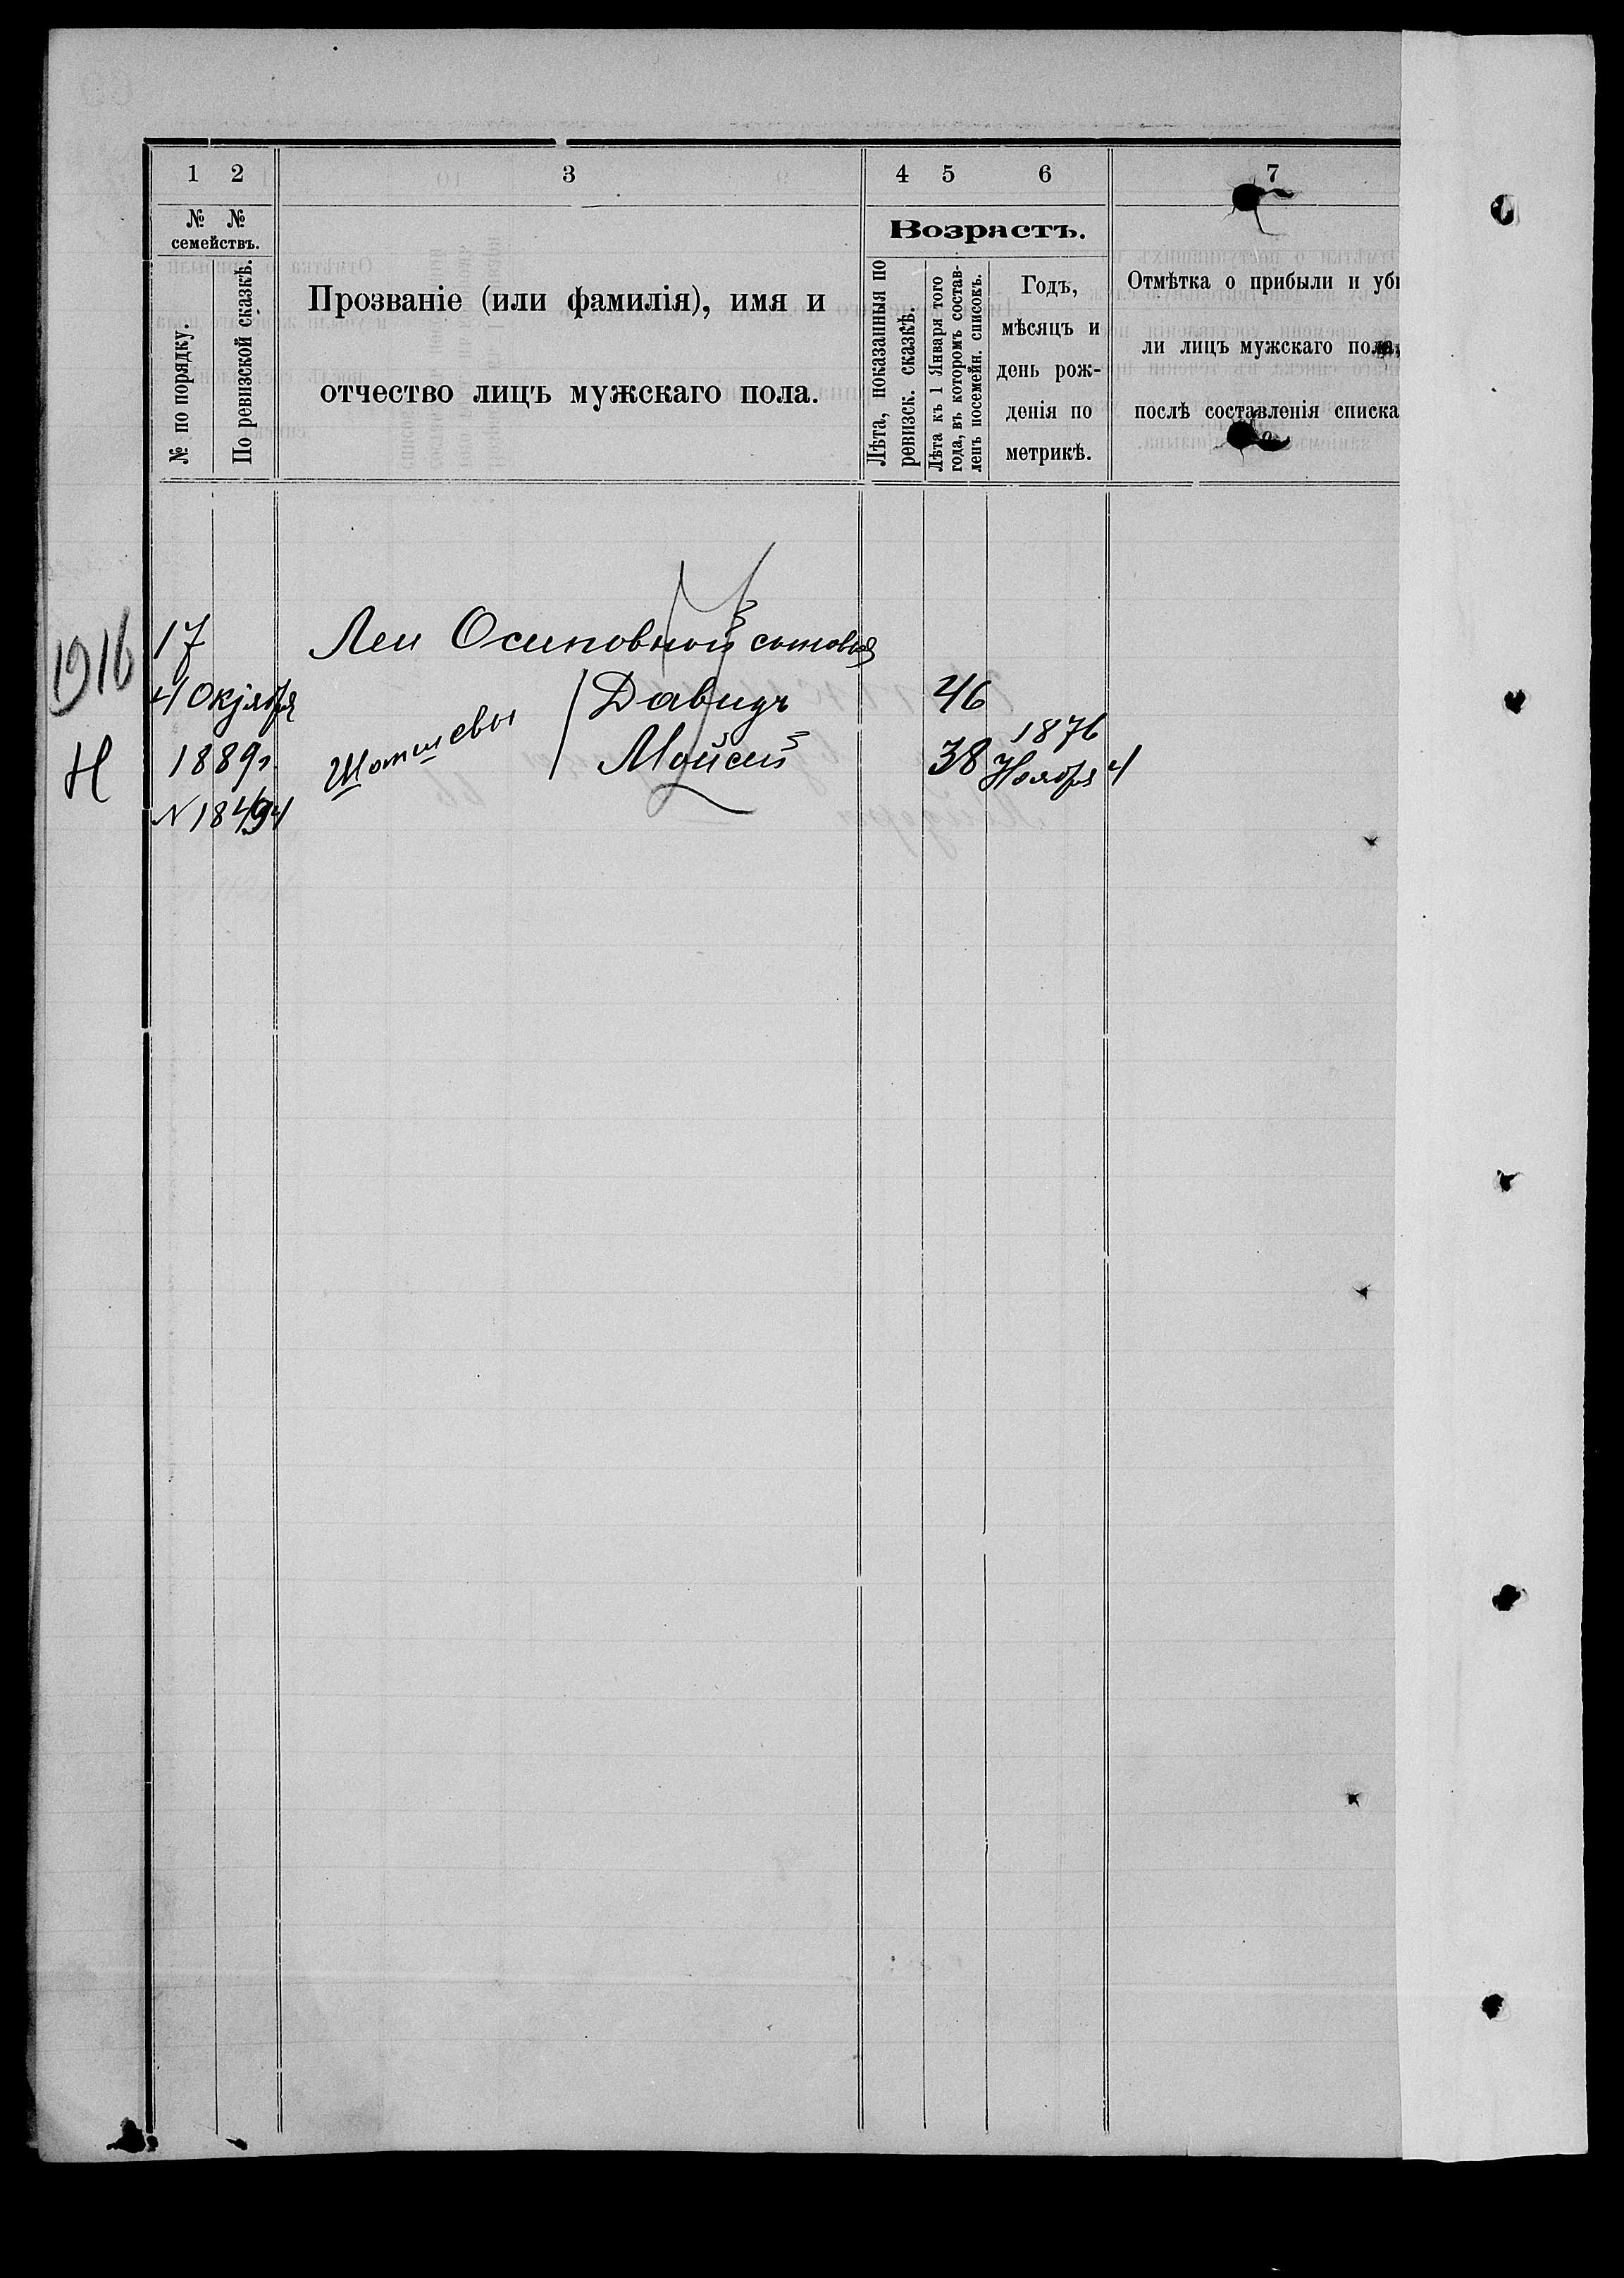 1 2 3 4 5 6 7
№ № семействъ.
№ по порядку.
По ревизской сказкѣ.
Прозваніе (или фамилія), имя и
отчество лицъ мужскаго пола.
Возрастъ.
Лѣта, показанныя по
ревизск. сказкѣ.
Лѣта къ 1 Января того
года, въ которомъ состав-
ленъ посемейн. списокъ.
Годъ,
мѣсяцъ и
день рож-
денія по
метрикѣ.
Отмѣтка о прибыли и убы
ли лицъ мужскаго пола,
послѣ составленія списка
1916
Н
17 Леи Осиповной сыновья
4 Октября Давидъ 46
1889г. Мойсей 38 1876
Ноября 4
№ 18494